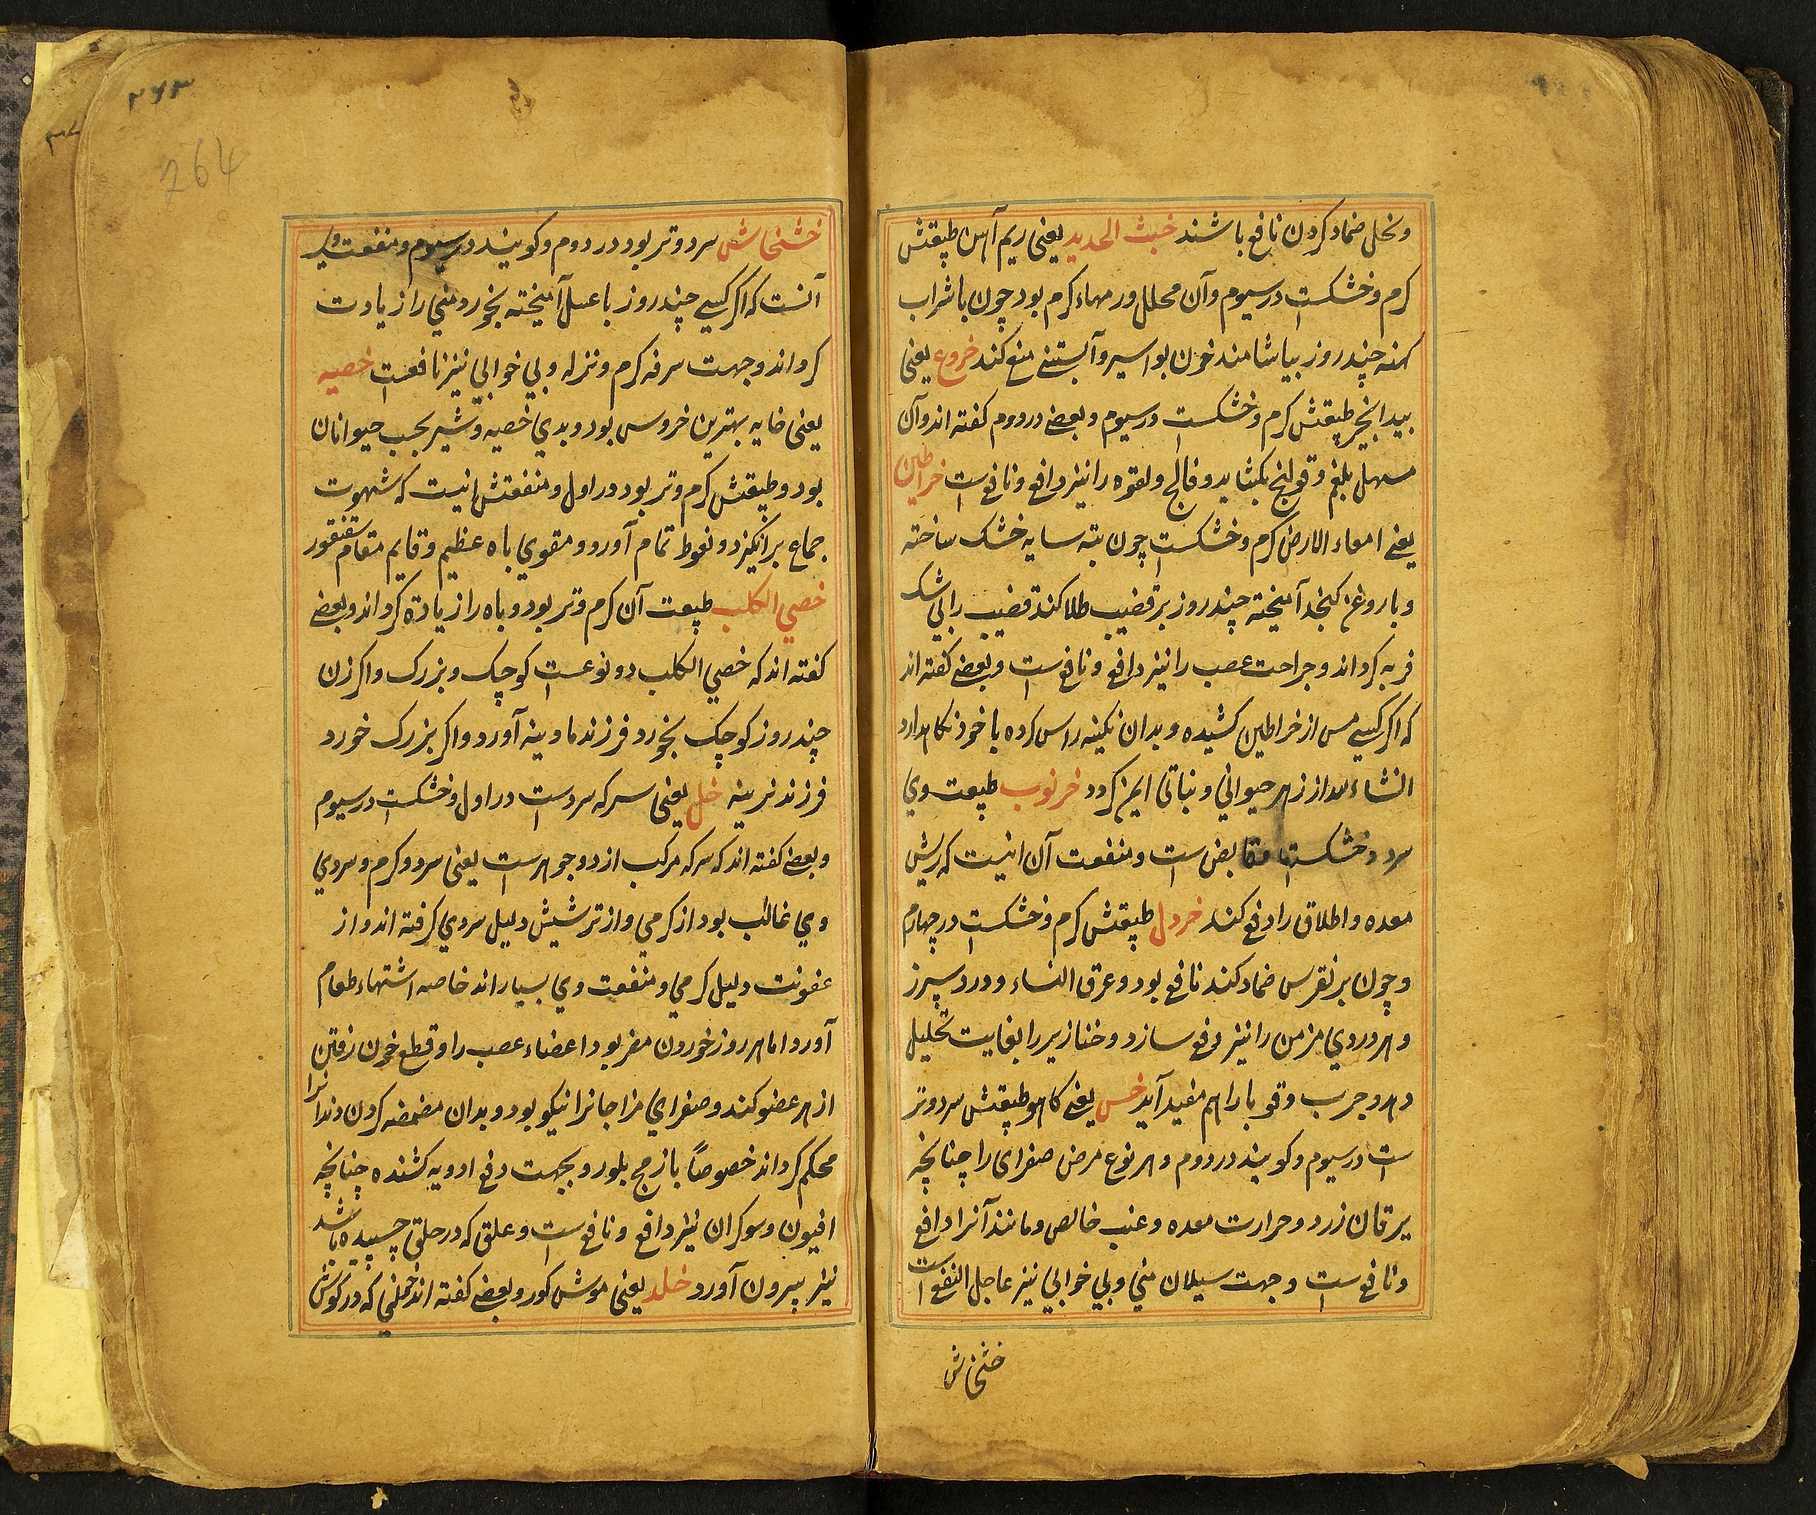 ونخل ضماد کردن نافع باشند خبث الحدید یعنی ریم آهن طبیعتش
کرم و خشکست در سیوم و آن محلل ورمهاء کرم بود چون با شراب
کهنه چند روز بیاشامند خون بواسیر و آبستنی منع کند خروع یعنی
بیدانجیر طبیعتش کرم و خشکست در سیوم و بعضی در دوم کفته اند و آن
مسهل بلغم و قولنج بکشاید و فالج و لقوه را نیز دافع و نافع است خراطین
یعنی امعاء الارض کرم و خشکست چون بته سایه خشک ساخته
و با روغن کنجد آمیخته چند روز بر قضیب طلا کند قضیب را بی شک
فربه کرداند و جراحت عصب را نیز دافع و نافع است و بعضی کفته اند
که اکر کسی مس از خراطین کشیده و بدان نکینه راس کرده با خود نکاهدارد
انشاءالله از زهر حیوانی و نباتی ایمن کردد خرنوب طبیعت وی
سرد و خشکست قابض است و منفعت آن اینست که ریش
معده و اطلاق را دفع کند خردل طبیعتش کرم و خشکست در چهارم
و چون بر نقرس ضماد کند نافع بود و عرق النساء و درد سپرز
و هر دردی مزمن را نیز دفع سازد و خنازیر را بغایت تحلیل
دهد و جرب و قوبا را هم مفید آید خس یعنی کاهو طبیعتش سرد و تر
است در سیوم و کویند در دوم و هر نوع مرض صفرای را چنانچه
یرقان زرد و حرارت معده و غب خالص و مانند آنرا دافع
و نافع است و جهت سیلان منی و بی خوابی نیز عاجل النفع است
خشخاش
۲۶۳
264
خشخاش سرد و تر بود در دوم و کویند در سیوم و منفعت وی
آنست که اکر کسی چند روز با عسل آمیخته بخورد منی را زیادت
کرداند و جهت سرفه کرم و نزله و بی خوابی نیز نافعست خصیه
یعنی خایه بهترین خروس بود و بدی خصیه و شیر بحسب حیوانان
بود و طبیعتش کرم و تر بود در اول و منفعتش اینست که شهوت
جماع برانکیزد و نعوط تمام آورد و مقوی باه عظیم و قایم مقام سقنقور
خصی الکلب طبیعت آن کرم و تر بود و باه را زیاده کرداند و بعضی
کفته اند که خصی الکلب دو نوعست کوچک و بزرک و اکر زن
چند روز کوچک بخورد فرزند مادینه آورد و اکر بزرک خورد
فرزند نرینه خل یعنی سرکه سردست در اول و خشکست در سیوم
و بعضی کفته اند که سرکه مرکب از دو جوهر است یعنی سرد و کرم و سردی
وی غالب بود از کرمی و از ترشیش دلیل سردی کرفته اند و از
عفونت دلیل کرمی و منفعت وی بسیار اند خاصه اشتهاء طعام
آورد اما هر روز خوردن مضر بود اعضاء عصب را و قطع خون رفتن
از هر عضو کند و صفرای مزاجانرا نیکو بود و بدان مضمضه کردن دندانرا
محکم کرداند خصوصاً با زمج بلور و بجهت دفع ادویه کشنده چنانچه
افیون و سوکران نیز دافع و نافع است و علق که در حلق چسپیده باشد
نیز بیرون آورد خلد یعنی موش کور و بعضی کفته اند خملی که در کوش